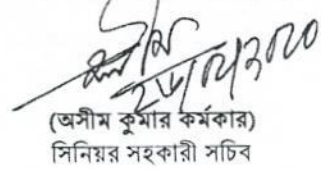 অসীম
(অসীম কুমার কর্মকার)
সিনিয়র সহকারী সচিব